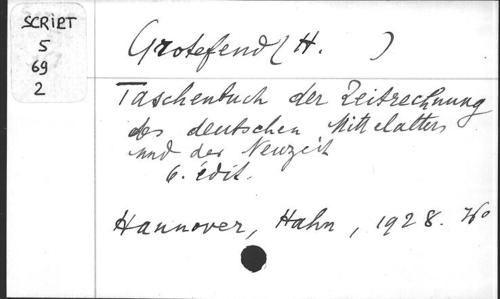 SCRIPT
5
69
2
Grotefend (H. )
Taschenbuch der Zeitrechnung
des deutschen Mittelalters
und der Neuzeit
6. édit.
Hannover, Hahn, 1928.